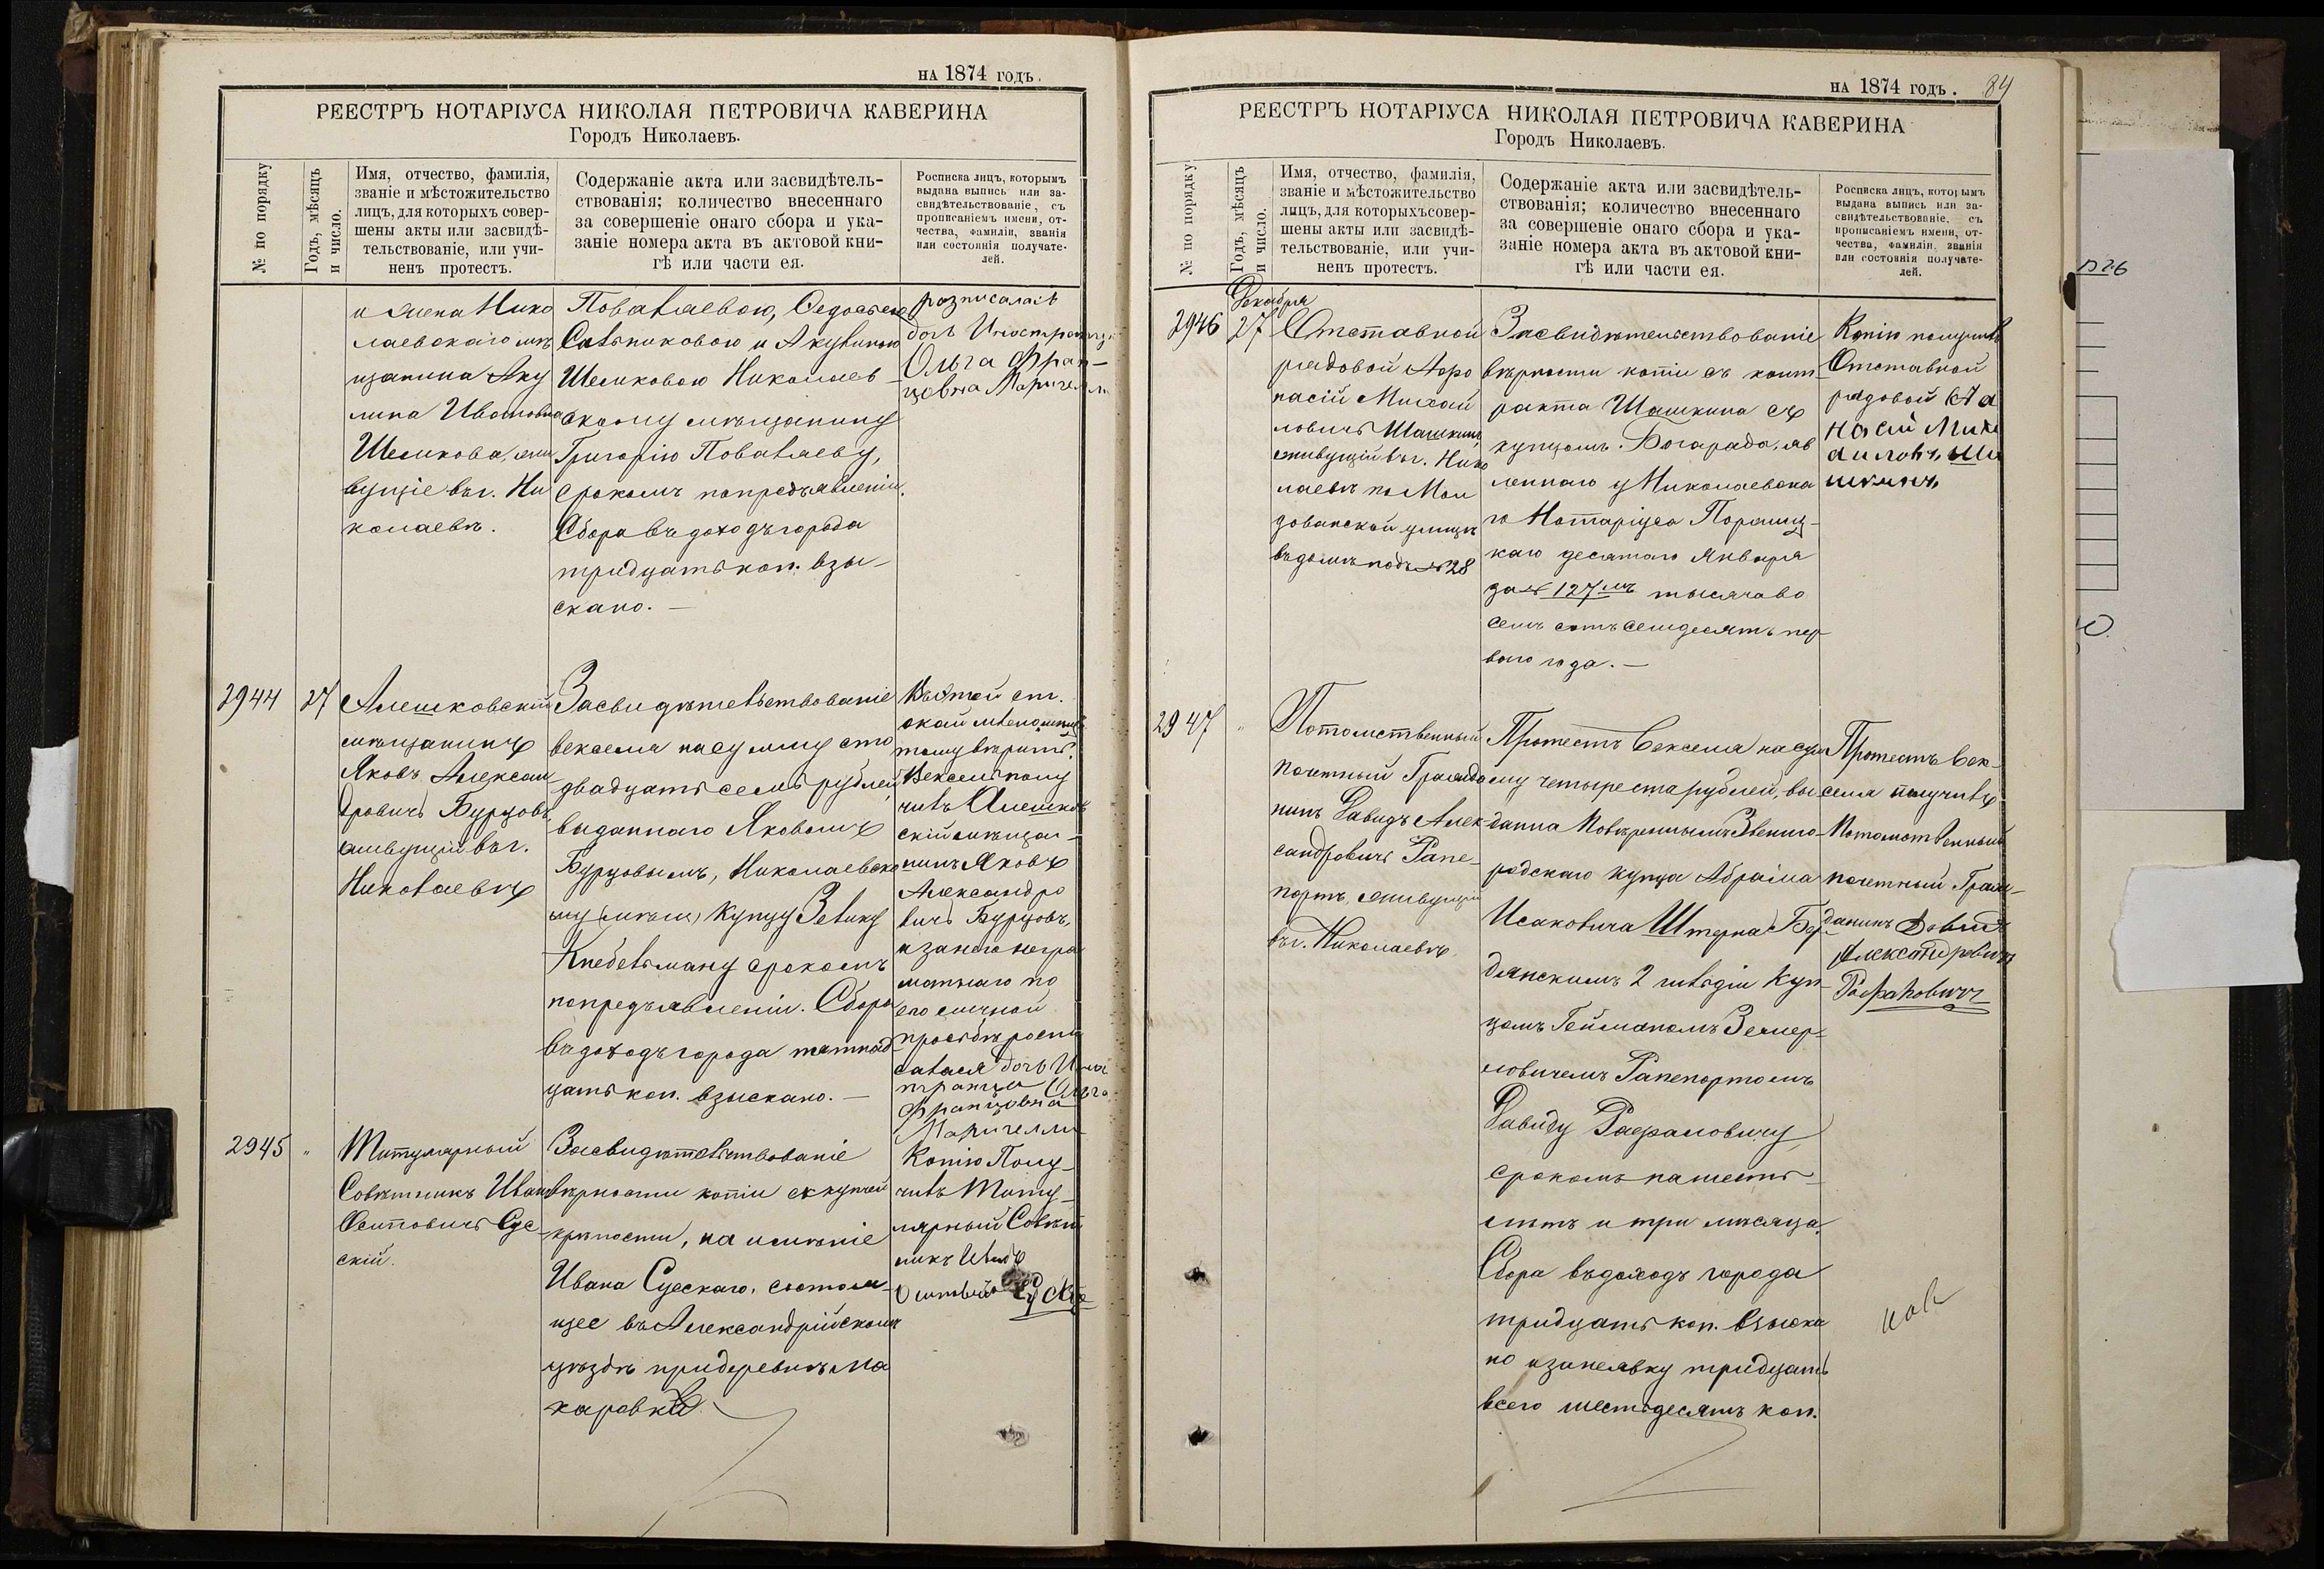 на 1874 годъ.
РЕЕСТРЪ НОТАРІУСА НИКОЛАЯ ПЕТРОВИЧА КАВЕРИНА
Городъ Николаевъ.
№ по порядку
Годъ, мѣсяцъ
и число.
Имя, отчество, фамилія,
званіе и мѣстожительство
лицъ, для которыхъ совер-
шены акты или засвидѣ-
тельствованіе, или учи-
ненъ протестъ.
Содержаніе акта или засвидѣтель-
ствованія; количество внесеннаго
за совершеніе онаго сбора и ука-
заніе номера акта въ актовой кни-
гѣ или части ея.
Росписка лицъ, которымъ
выдана выпись или за-
свидѣтельствованіе, съ
прописаніемъ имени, от-
чества, фамиліи, званія
или состоянія получате-
лей.
и жена Нико
лаевскаго мѣ
щанина Аку
лина Ивановна
Шеликова, жи
вущіе въ г. Ни
колаевѣ.
Поваляевою,
Сальниковою и Акулиною
Шеликовою Николаев
скому мѣщанину
Григорію Поваляеву,
срокомъ по предъявленіи.
Сбора въ доходъ города
тридцать коп. взы-
скано. —
розписалась
дочь
Ольга Фран-
цовна Маричелли
2944
27
Алешковскій
мѣщанинъ
Яковъ Алексан
дровичъ Бурцовъ,
живущій въ г.
Николаевѣ
Засвидѣтельствованіе
векселя на сумму сто
двадцать семь рублей,
выданнаго Яковомъ
Бурцовымъ, Николаевско
му купцу Зелику
Кнебельману срокомъ
по предъявленіи. Сбора
въ доходъ города пятнад
цать коп. взыскано. —
Въ этой ст.
тому вѣрить.
Вексель полу
чилъ Алешков
скій мѣща-
нинъ Яковъ
Александро
вичъ Бурцовъ,
а за него негра
мотнаго по
его личной
прозьбѣ роспи
салася дочь Ино
странца Ольга
Францовна
Маричелли
2945
"
Титулярный
Совѣтникъ Иванъ
Осиповичъ Сус-
скій.
Засвидѣтельствованіе
вѣрности копіи съ купчей
крѣпости, на имѣніе
Ивана Сусскаго, состоя-
щее въ Александрійскомъ
уѣздѣ при деревнѣ Ма
каровкѣ.
Копію Полу-
чилъ Титу-
лярный Совѣт
никъ Иванъ
на 1874 годъ.
84
РЕЕСТРЪ НОТАРІУСА НИКОЛАЯ ПЕТРОВИЧА КАВЕРИНА
Городъ Николаевъ.
№ по порядку
Годъ, мѣсяцъ
и число.
Имя, отчество, фамилія,
званіе и мѣстожительство
лицъ, для которыхъ совер-
шены акты или засвидѣ-
тельствованіе, или учи-
ненъ протестъ.
Содержаніе акта или засвидѣтель-
ствованія; количество внесеннаго
за совершеніе онаго сбора и ука-
заніе номера акта въ актовой кни-
гѣ или части ея.
Росписка лицъ, которымъ
выдана выпись или за-
свидѣтельствованіе, съ
прописаніемъ имени, от-
чества, фамиліи, званія
или состоянія получате-
лей.
Декабря
2946
27
Отставной
рядовой Афо
насій Михай
ловичъ Шашкинъ,
живущій въ г. Нико
лаевѣ по Мол
даванской улицѣ
въ домѣ подъ № 28
Засвидѣтельствованіе
вѣрности копіи съ конт-
ракта Шашкина съ
купцомъ Богарадо, яв
леннаго у Николаевска
го Нотаріуса
десятаго Января
за № 127мъ тысяча во
семь сотъ семдесятъ пер
ваго года. —
Копію получилъ
Отставной
рядовой Афа
насій Миха
йловъ Ша
шкинъ
2947
"
Потомственный
почетный Гражда
нинъ Давидъ Алек-
сандровичъ Рапе-
портъ, живущій
въ г. Николаевѣ.
Протестъ векселя на сум
му четыреста рублей, вы
данна повѣреннымъ Звениго-
родскаго купца Абрама
Исаковича Штерна Бер-
дянскимъ 2 гильдіи куп-
цомъ Гейманомъ
Рапепортомъ
Давиду Рафаловичу
срокомъ на шесть
лѣтъ и три мѣсяца.
Сбора въ доходъ города
тридцать коп. взыска
но и за неявку тридцать
всего шестьдесятъ коп.
Протестъ век-
селя получилъ
Потомственный
почетный Граж-
данинъ Давидъ
Александровичъ
Рафаловичъ